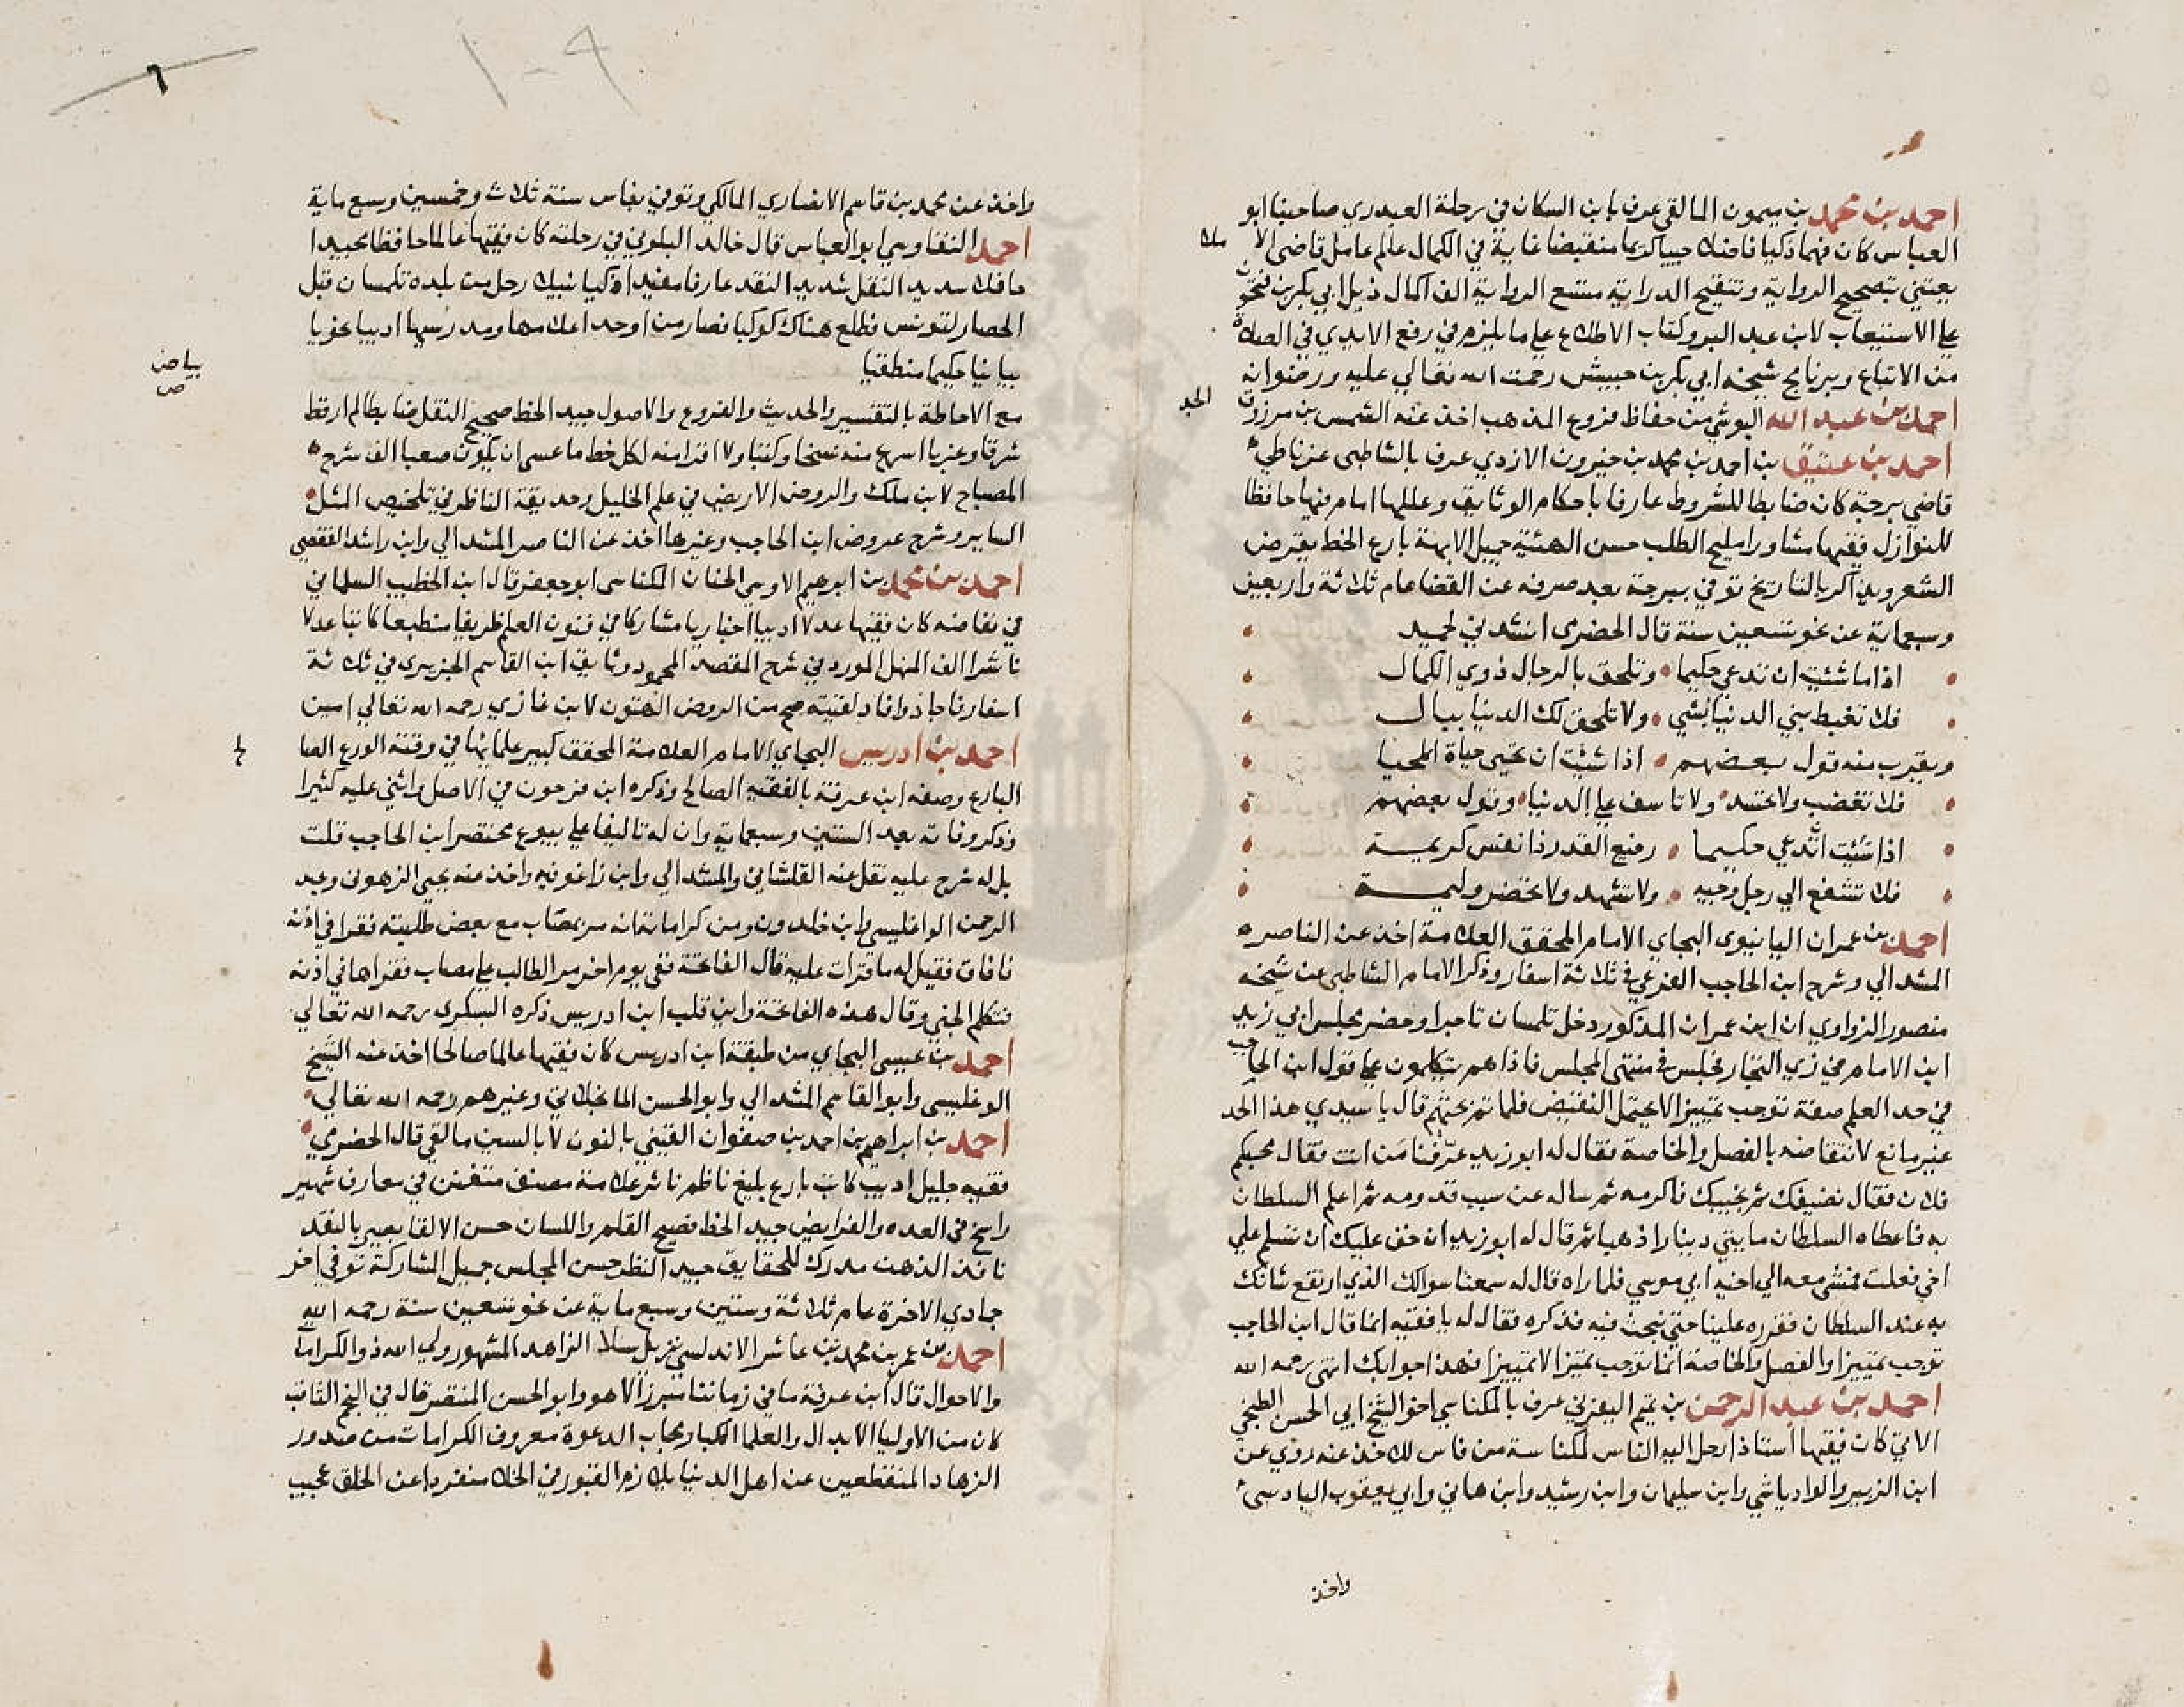 احمد بن محمد بن ميمون المالقي عرف بابن السكان في رحلة العبدري صاحبنا ابو
العباس كان فهما ذكيا فاضلا حييا كريما منقبضا غاية في الكمال عالم عامل قاضي الا ملك
يعتني بتصحيح الرواية وتنقيح الدراية متسع الرواية الف اكمال ذيل ابي بكر بن فتحون
علي الاستيعاب لابن عبد البر وكتاب الاطلاع علي ما يلزم في رفع الايدي في الصلاة
من الاتباع وبرنامج شيخه ابي بكر بن حبيش رحمت الله تعالي عليه ورضوانه
احمد بن عبد الله البوشي من حفاظ فروع المذهب اخذ عنه الشمس بن مرزوق الجد
احمد بن عتيق بن احمد بن محمد بن خيرون الازدي عرف بالشاطبي غرناطي
قاضي برجة كان ضابطا للشروط عارفا باحكام الوثايق وعللها امام فيها حافظا
للنوازل فقيها مشاورا مليح الطلب حسن الهيئة جميل الابهة بارع الخط يقرض
الشعر ويذاكر بالتاريخ توفي ببرجة بعد صرفه عن القضا عام ثلاثة واربعين
وسبعماية عن نحو تسعين سنة قال الحضرمي انشدني لحميد
اذا ما شئت ان تدعي حكيما • وتلحق بالرجال ذوي الكمال
فلا تغبط بني الدنيا بشي • ولا تلحق لك الدنيا ببال
ويقرب منه قول بعضهم • اذا شئت ان تحيي حياة المحيا
فلا تغضب ولا تحسد • ولا تاسف علي الدنيا • وقول بعضهم
اذا شئت ان تدعي حكيما • رفيع القدر ذا نفس كريمة
فلا تشفع الي رجل وجيه • ولا تشهد ولا تحضر وليمة
احمد بن عمران اليانيوي البجاي الامام المحقق العلامة اخذ عن الناصر
المشدالي وشرح ابن الحاجب الفرعي في ثلاثة اسفار وذكر الامام الشاطبي عن شيخه
منصور الزواوي ان ابن عمران المذكور دخل تلمسان تاجرا وحضر مجلس ابي زيد
ابن الامام في زي التجار فجلس في منتهي المجلس فاذا هم يتكلمون علي قول ابن الحاجب
في حد العلم صفة توجب تمييزا لا يحتمل النقيض فلما تم بحثهم قال يا سيدي هذا الحد
غير مانع لانتقاضه بالفصل والخاصة فقال له ابو زيد عرّفنا من انت فقال محبكم
فلان فقال نضيفك ثم نجيبك فاكرمه ثم ساله عن سبب قدومه ثم اعلم السلطان
به فاعطاه السلطان مايتي دينارا ذهبا ثم قال له ابو زيد ان خف عليك ان تسلم علي
اخي فعلت فمشي معه الي اخيه ابي موسي فلما راه قال له سمعنا سوالك الذي ارتفع شانك
به عند السلطان فقرره علينا حتي نبحث فيه فذكره فقال له يا فقيه انما قال ابن الحاجب
توجب تمييزا والفصل والخاصة انما توجب تميزا لا تمييزا فهذا جوابك انتهي رحمه الله
احمد بن عبد الرحمن بن تميم اليفرني عرف بالمكناسي اخو الشيخ ابي الحسن الطنجي
الاتي كان فقيها استاذا رحل اليه الناس لمكناسة من فاس للاخذ عنه روي عن
ابن الزبير والوادياشي وابن سليمان وابن رشيد وابن هاني وابي يعقوب البادسي
واخذ
٦
١-٩
واخذ عن محمد بن قاسم الانصاري المالكي وتوفي بفاس سنة ثلاث وخمسين وسبع ماية
احمد النقاوسي ابو العباس قال خالد البلوي في رحلته كان فقيها عالما حافظا مجيدا
حافلا سديد النقل شديد النقد عارفا مفيدا ذكيا نبيلا رحل من بلده تلمسان قبل
الحصار لتونس فطلع هناك كوكبا فصار من اوحد اعلامها ومدرسيها اديبا نحويا
بيانيا حكيما منطقيا
بياض
ص
مع الاحاطة بالتفسير والحديث والفروع والاصول جيد الخط صحيح النقل ضابطا لم ار قط
شرقا وغربا اسرع منه نسخا وكتبا ولا اقرا منه لكل خط ما عسي ان يكون صعبا الف شرح
المصباح لابن ملك والروض الاريض في علم الخليل وحديقة الناظر في تلخيص المثل
الساير وشرح عروض ابن الحاجب وغيرها اخذ عن الناصر المشدالي وابن راشد القفصي
احمد بن محمد بن ابرهيم الاوسي الحنان المكناسي ابو جعفر قال ابن الخطيب السلماني
في نفاضته كان فقيها عدلا اديبا اخباريا مشاركا في فنون العلم ظريفا منطبعا كاتبا عدلا
ناشرا الف المنهل المورود في شرح المقصد المحمود وثايق ابن القاسم الجزيري في ثلاثة
اسفار فاجاد وافاد لقيته صح من الروض الهتون لابن غازي رحمه الله تعالي امين
احمد بن ادريس البجاي الامام العلامة المحقق كبير علمايها في وقته الورع الصا لح
البارع وصفه ابن عرفة بالفقيه الصالح وذكره ابن فرحون في الاصل واثني عليه كثيرا
وذكر وفاته بعد الستين وسبعماية وان له تاليفا علي بيوع مختصر ابن الحاجب قلت
بل له شرح عليه نقل عنه القلشاني والمشدالي وابن زاغو وغيره واخذ عنه يحيي الرهوني وعبد
الرحمن الواغليسي وابن خلدون ومن كراماته انه مر بمصاب مع بعض طلبته فقرا في اذنه
فافاق فقيل له ما قرات عليه قال الفاتحة ففي يوم اخر مر الطالب علي مصاب فقراها في اذنه
فتكلم الجني وقال هذه الفاتحة واين قلب ابن ادريس ذكره البسكري رحمه الله تعالي
احمد بن عيسي البجاي من طبقة ابن ادريس كان فقيها عالما صالحا اخذ عنه الشيخ
الوغليسي وابو القاسم المشدالي وابو الحسن المانجلاتي وغيرهم رحمه الله تعالي
احمد بن ابراهيم بن احمد بن صفوان القيني بالنون لا بالسين مالقي قال الحضرمي
فقيه جليل اديب كاتب بارع بليغ ناظم ناثر علامة مصنف متفنن في معارف شهير
راسخ في العدد والفرايض جيد الخط فصيح القلم واللسان حسن الالقا بصير بالنقد
نافذ الذهن مدرك للحقايق جيد النظر حسن المجلس جميل المشاركة توفي اخر
جمادي الاخرة عام ثلاثة وستين وسبع ماية عن نحو تسعين سنة رحمه الله
احمد بن عمر بن محمد بن عاشر الاندلسي نزيل سلا الزاهد المشهور ولي الله ذو الكرامات
والاحوال قال ابن عرفة ما في زماننا مبرزا الا هو وابو الحسن المنتصر قال في النجم الثاقب
كان من الاوليا الابدال والعلما الكبار مجاب الدعوة معروف الكرامات من صدور
الزهاد المنقطعين عن اهل الدنيا يلازم القبور في الخلا منفردا عن الخلق عجيب